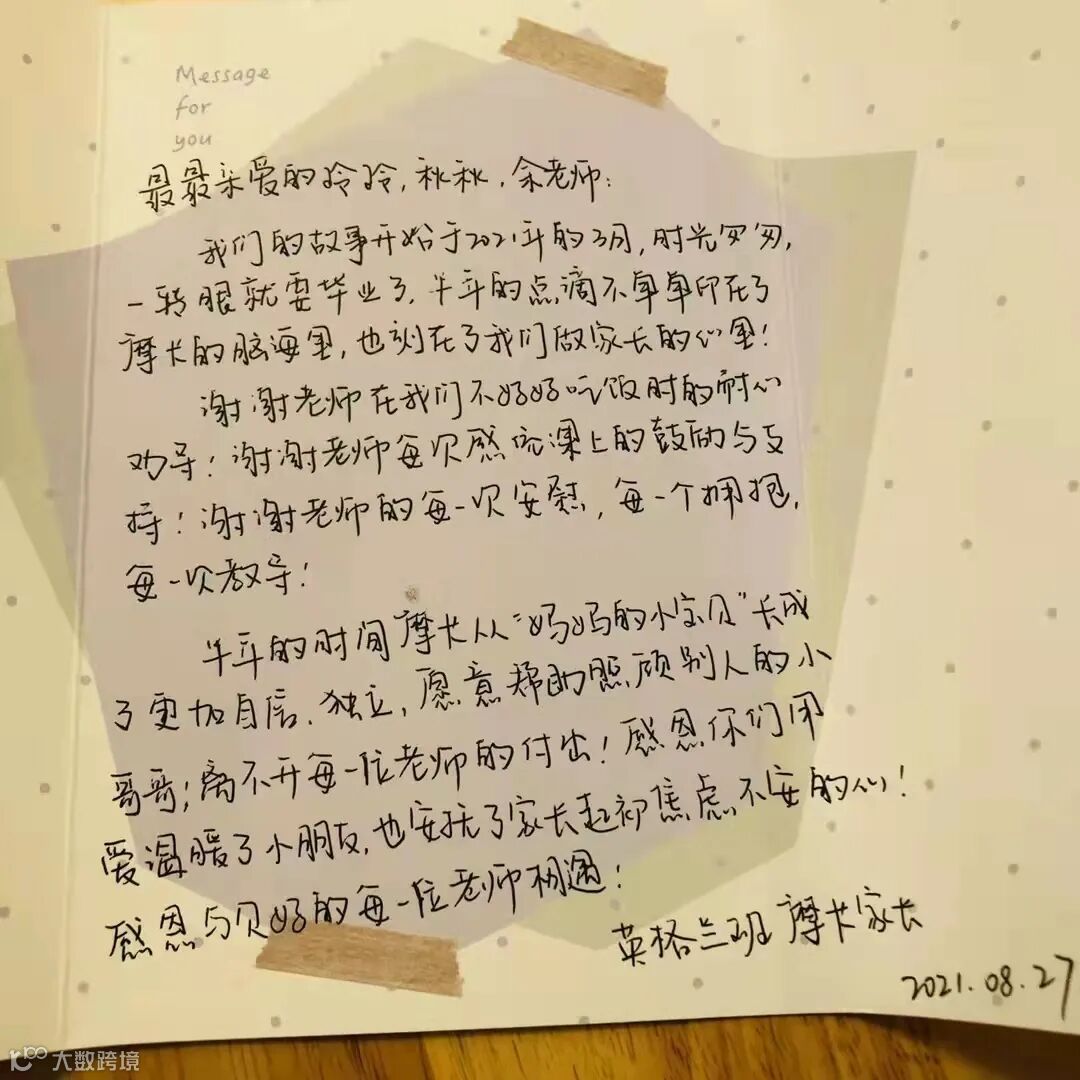 Message
for
you
最最亲爱的玲玲，秋秋，余老师：
我们的故事开始于2021年的3月，时光匆匆，
一转眼就要毕业了，半年的点滴不单单印在了
摩卡的脑海里，也刻在了我们做家长的心里！
谢谢老师在我们不好好吃饭时的耐心
劝导！谢谢老师每次感统课上的鼓励与支
持！谢谢老师的每一次安慰，每一个拥抱，
每一次教导！
半年的时间摩卡从“妈妈的小宝贝”长成
了更加自信、独立，愿意帮助照顾别人的小
哥哥；离不开每一位老师的付出！感恩你们用
爱温暖了小朋友，也安抚了家长起初焦虑不安的心！
感恩与贝好的每一位老师相遇！
英格兰班 摩卡家长
2021.08.27
大数跨境